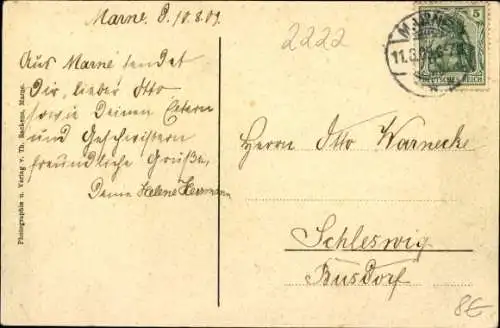 Marne. d. 10.8.09.
2222
5
MARNE
DEUTSCHES REICH
Aus Marne sendet
Dir, lieber Otto
sowie Deinen Eltern
und Geschwistern
freundliche Grüße,
Deine Helene Herrmann
Herrn Otto Warnecke
Schleswig
Busdorf
8€
Photographie u. Verlag v. Th. Backens, Marne.